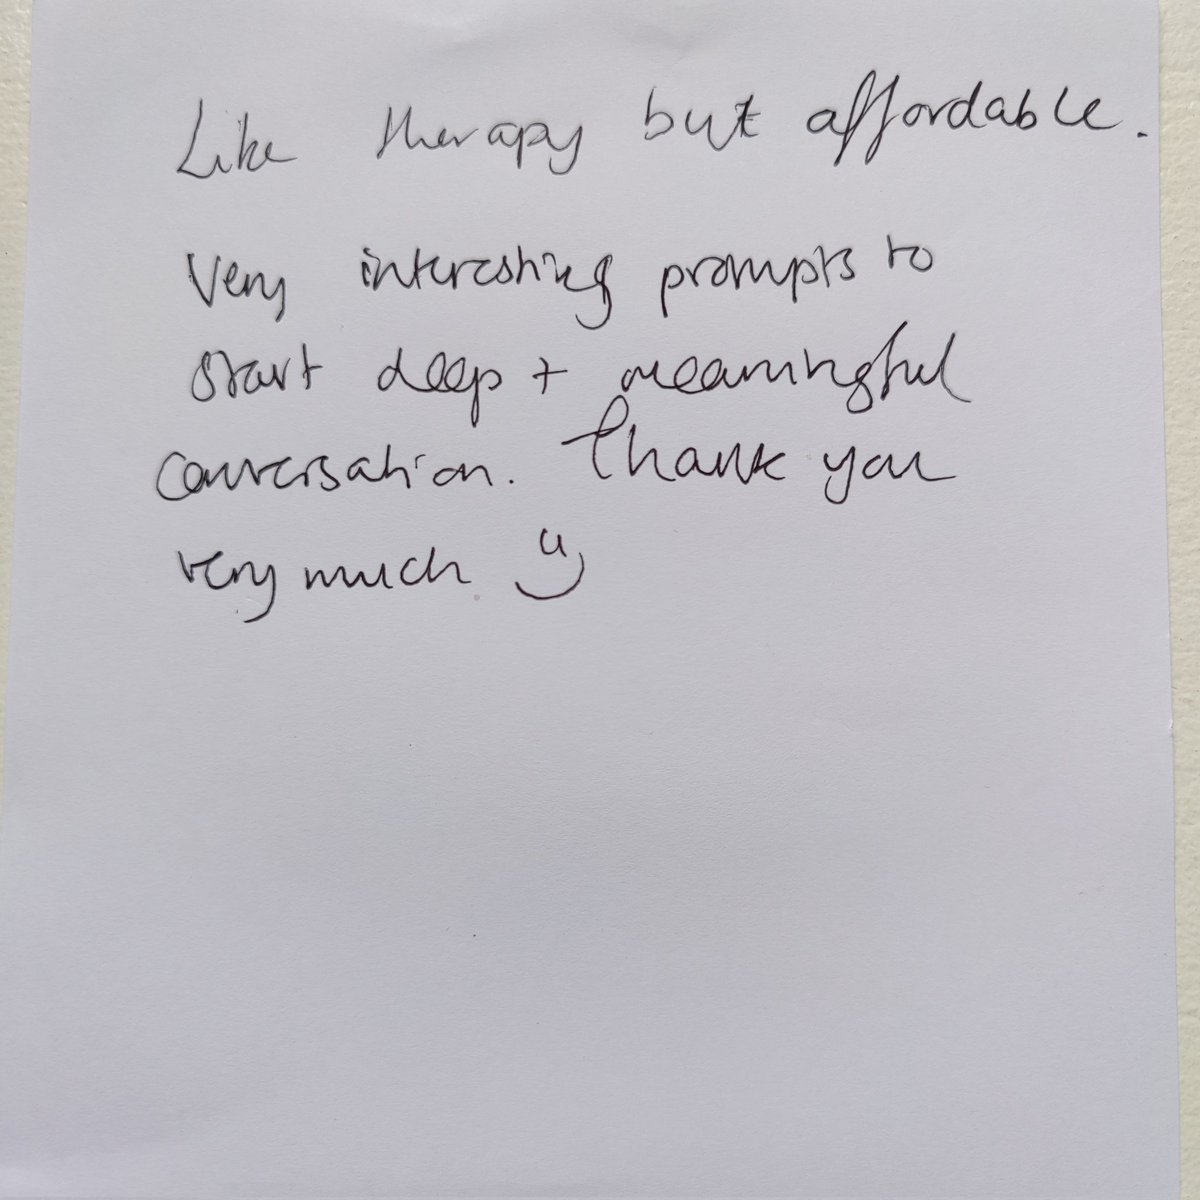 Like therapy but affordable.
Very interesting prompts to
start deep + meaningful
conversation. Thank you
very much